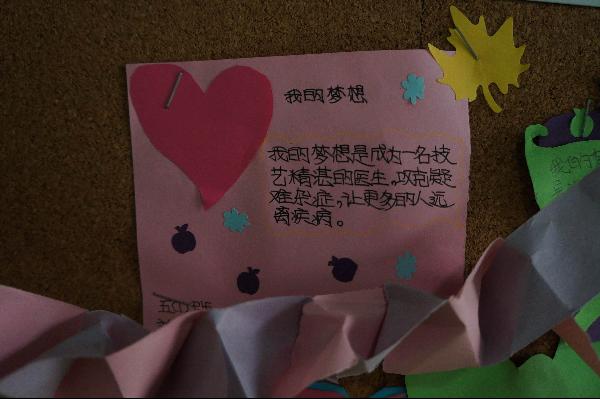 我的梦想
我的梦想是成为一名技
艺精湛的医生。攻克疑
难杂症，让更多的人远
离疾病。